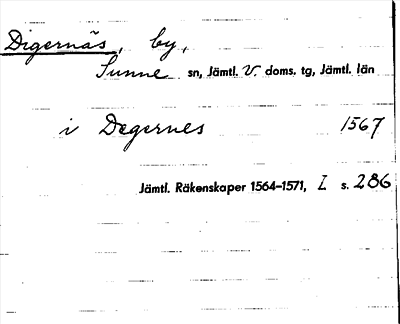 Digernäs, by,
Sunne sn, Jämtl. V. doms. tg, Jämtl. län
i Degernes 1567
Jämtl. Räkenskaper 1564–1571, I s. 286